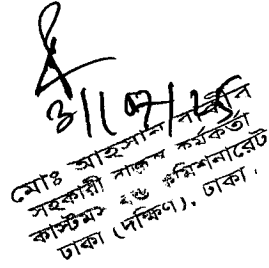 31/07/25
মোঃ আহসান
সহকারী রাজস্ব কর্মকর্তা
কাস্টমস এন্ড কমিশনারেট
ঢাকা (দক্ষিণ), ঢাকা.